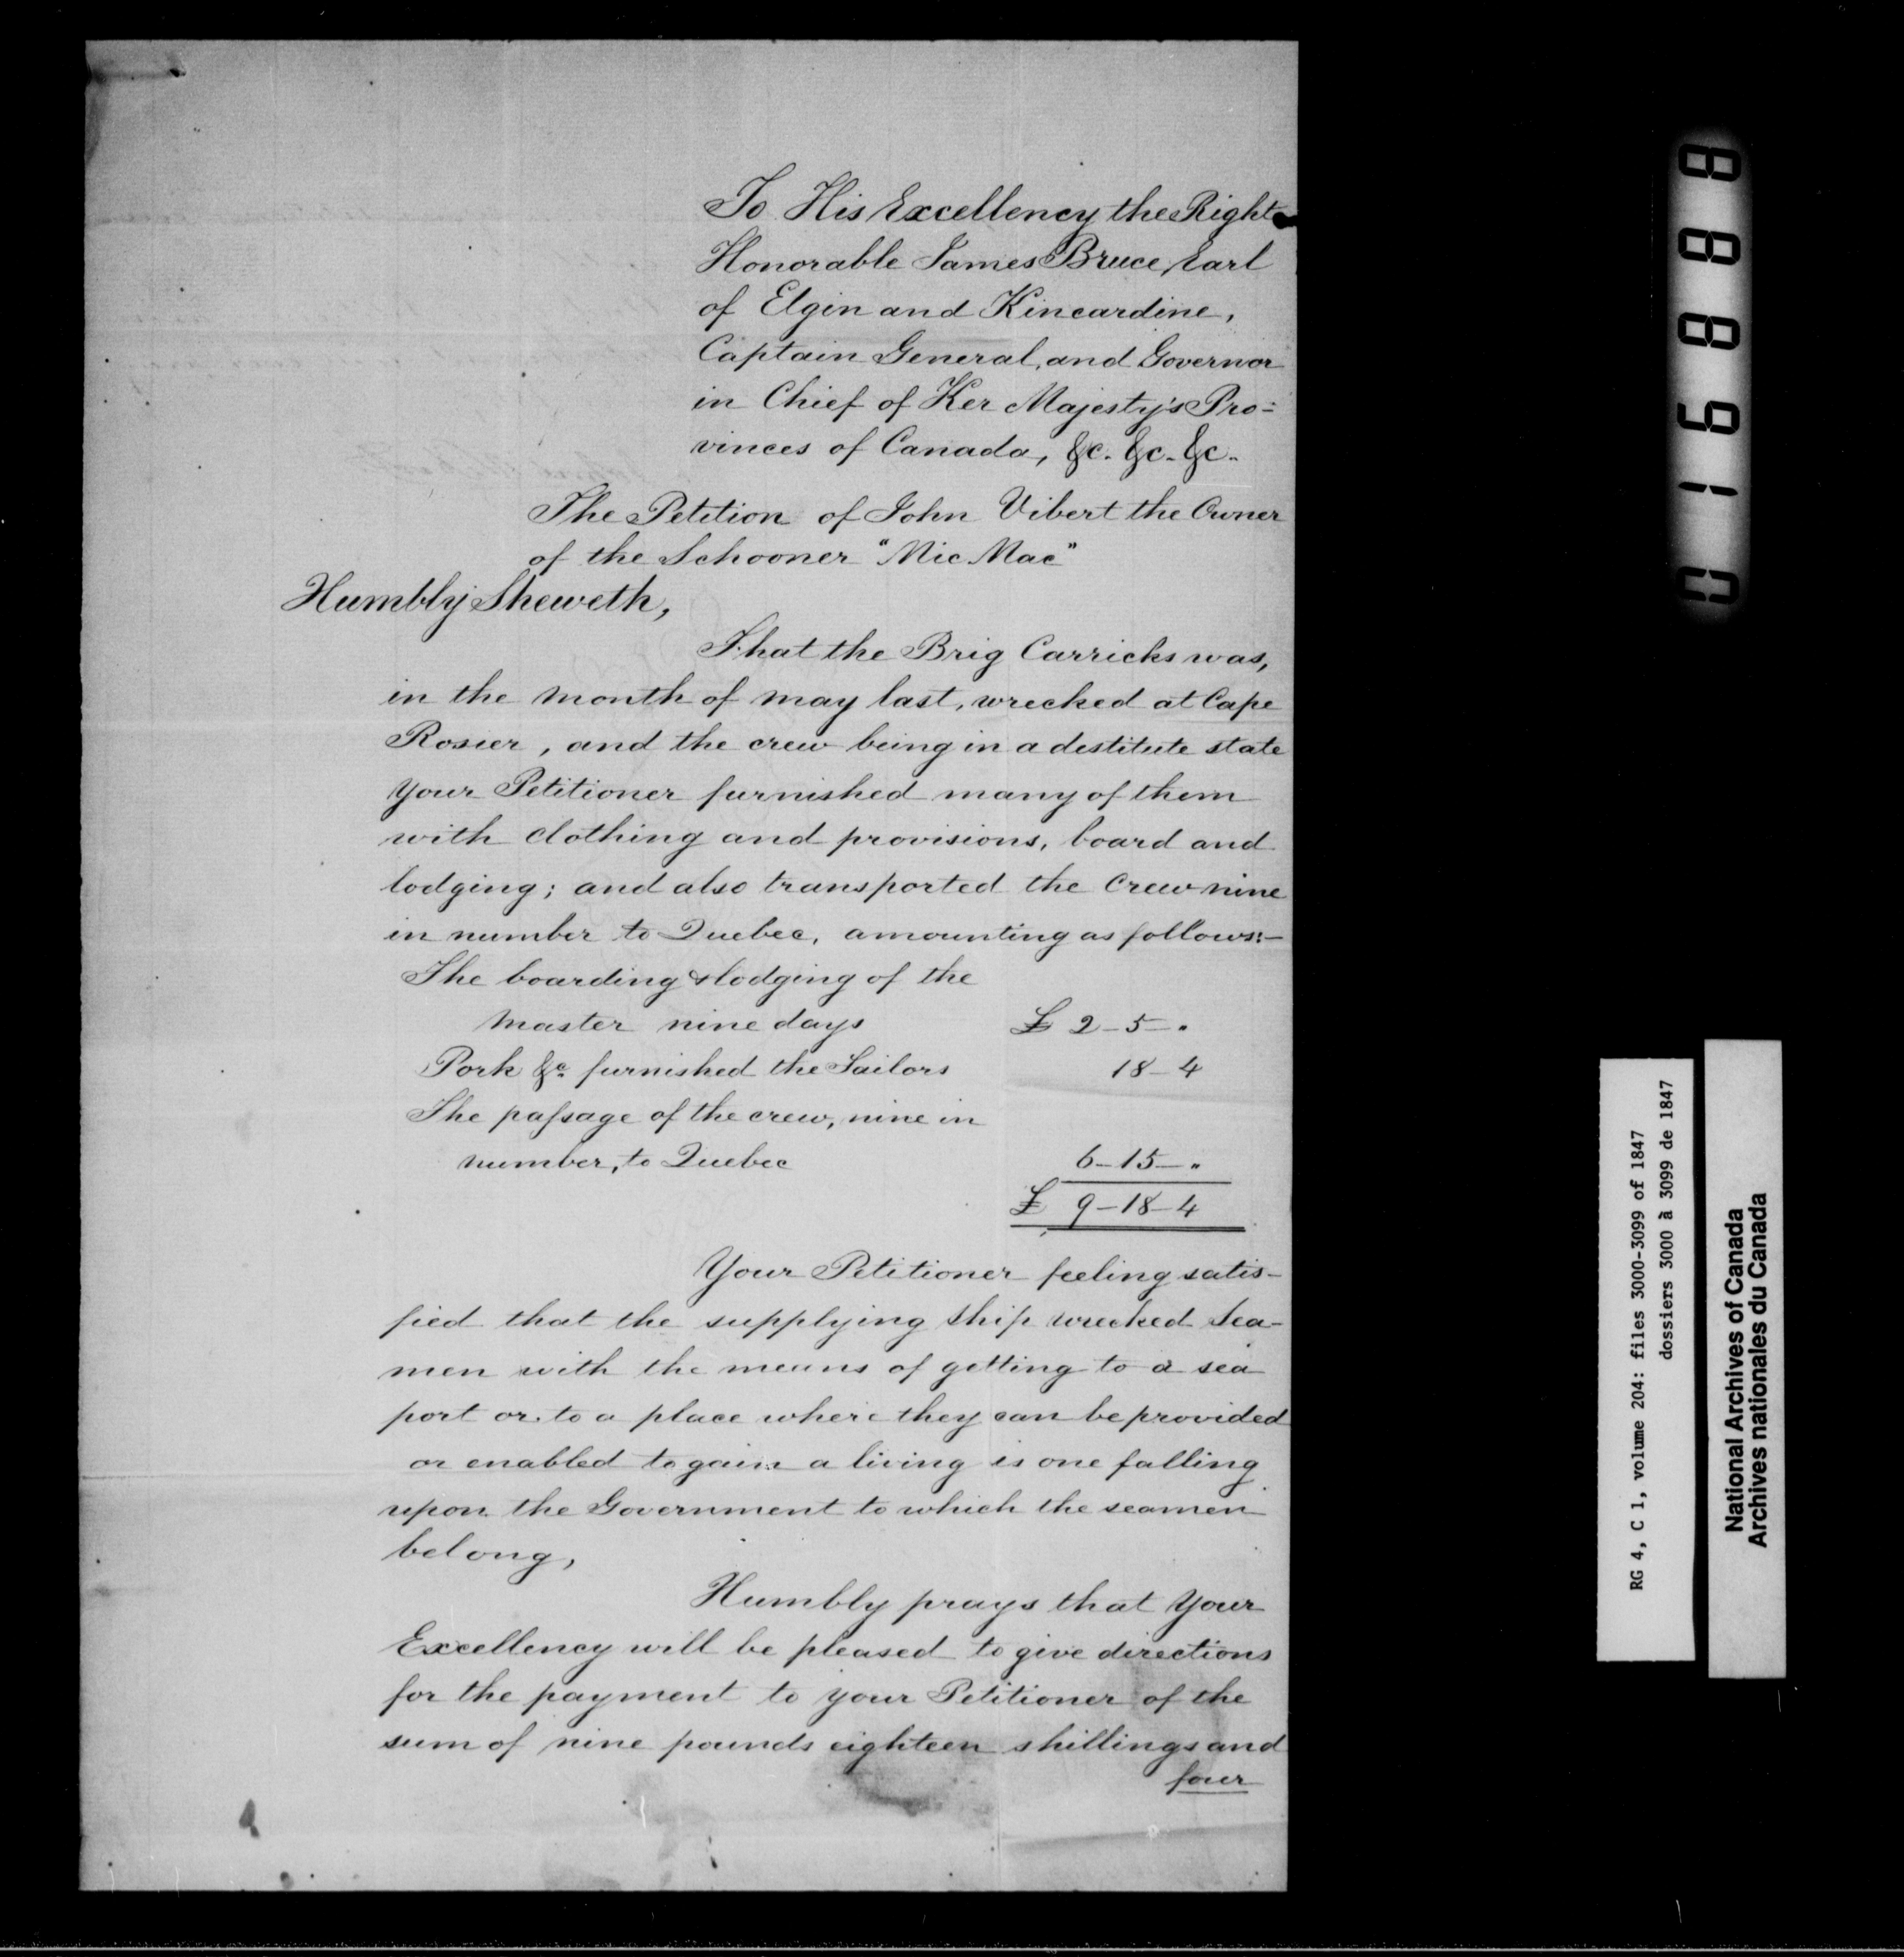 To His Excellency the Right
Honorable James Bruce, Earl
of Elgin and Kincardine,
Captain General, and Governor
in Chief of Her Majesty's Pro=
vinces of Canada, &c. &c. &c.
The Petition of John Vibert the Owner
of the Schooner "Mic Mac"
Humbly Sheweth,
That the Brig Carricks was,
in the month of may last, wrecked at Cape
Rosier, and the crew being in a destitute state
your Petitioner furnished many of them
with clothing and provisions, board and
lodging; and also transported the Crew nine
in number to Quebec, amounting as follows:-
The boarding & lodging of the
master nine days £ 2-5-"
Pork &c furnished the Sailors 18-4
The passage of the crew, nine in
number, to Quebec 6-15-"
£ 9-18-4
Your Petitioner feeling satis-
fied that the supplying ship wrecked Sea-
men with the means of getting to a sea
port or to a place where they can be provided
or enabled to gain a living is one falling
upon the Government to which the seamen
belong,
Humbly prays that Your
Excellency will be pleased to give directions
for the payment to your Petitioner of the
sum of nine pounds eighteen shillings and
four
016888
RG 4, C 1, volume 204: files 3000-3099 of 1847
dossiers 3000 à 3099 de 1847
National Archives of Canada
Archives nationales du Canada